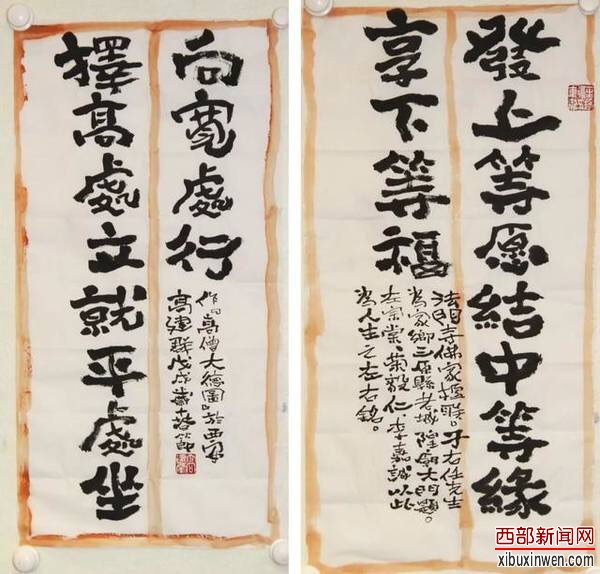 發上等愿結中等緣
享下等福
法門寺佛家楹聯。于右任先生
為家鄉三原縣老城隍廟大門題。
左宗棠、榮毅仁、李嘉誠以此
為人生之左右銘。
擇高處立就平處坐
向寬處行
高僧大德圖。於西安
高建群戊戌歲春節
西部新闻网
xibuxinwen.com